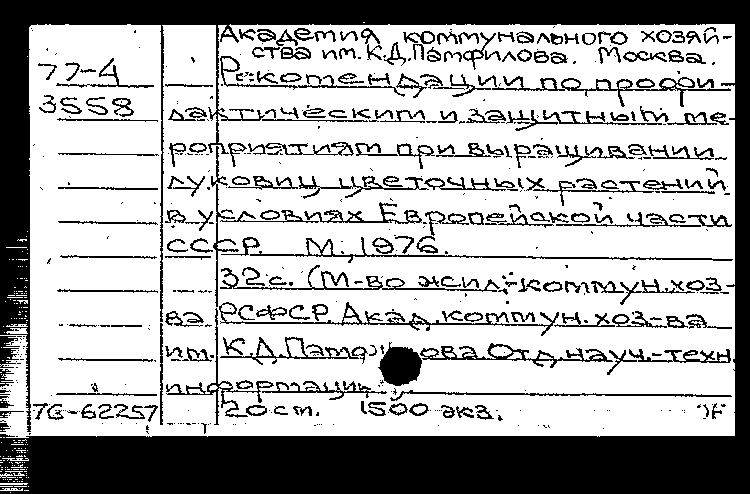 Академия коммунального хозяй-
ства им. К.Д. Памфилова. Москва.
77-4
Рекомендации по профи-
3558
лактическим и защитным ме-
роприятиям при выращивании
луковиц цветочных растений
в условиях Европейской части
СССР. М., 1976.
32 с. (М-во жил.-коммун. хоз-
ва РСФСР. Акад. коммун. хоз-ва
им. К.Д. Отд. науч.-техн.
76-62257 20 см. 1500 экз.